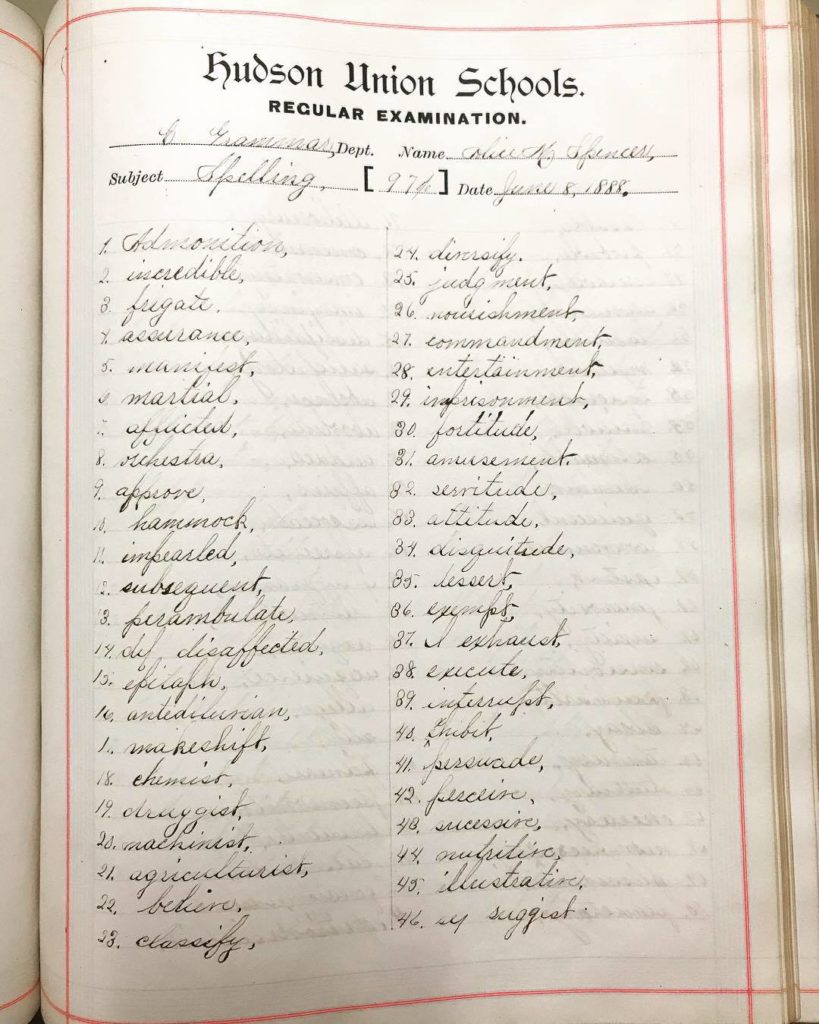 Hudson Union Schools.
REGULAR EXAMINATION.
C Grammar, Dept. Name Alice M. Spencer,
Subject Spelling, [97%] Date June 8, 1888.
1. Admonition,
2. incredible,
3. frigate.
4. assurance,
5. manifest,
6. martial.
7. afflicted,
8. orchestra,
9. approve,
10. hammock,
11. impearled,
12. subsequent,
13. perambulate,
14. disaffected.
15. epitaph,
16. antediluvian,
1. makeshift,
18. chemist,
19. druggist,
20. machinist,
21. agriculturist,
22. believe.
23. classify,
24. diversify.
25. judgment,
26. nourishment,
27. commandment,
28. entertainment,
29. imprisonment,
30. fortitude,
31. amusement.
32. servitude,
33. attitude,
34. disquitude,
35. dessert,
36. exempt,
37. exhaust,
38. execute,
39. interrupt,
40. exhibit,
41. persuade,
42. perceive,
43. sucessive,
44. nutritive,
45. illustrative,
46. suggist